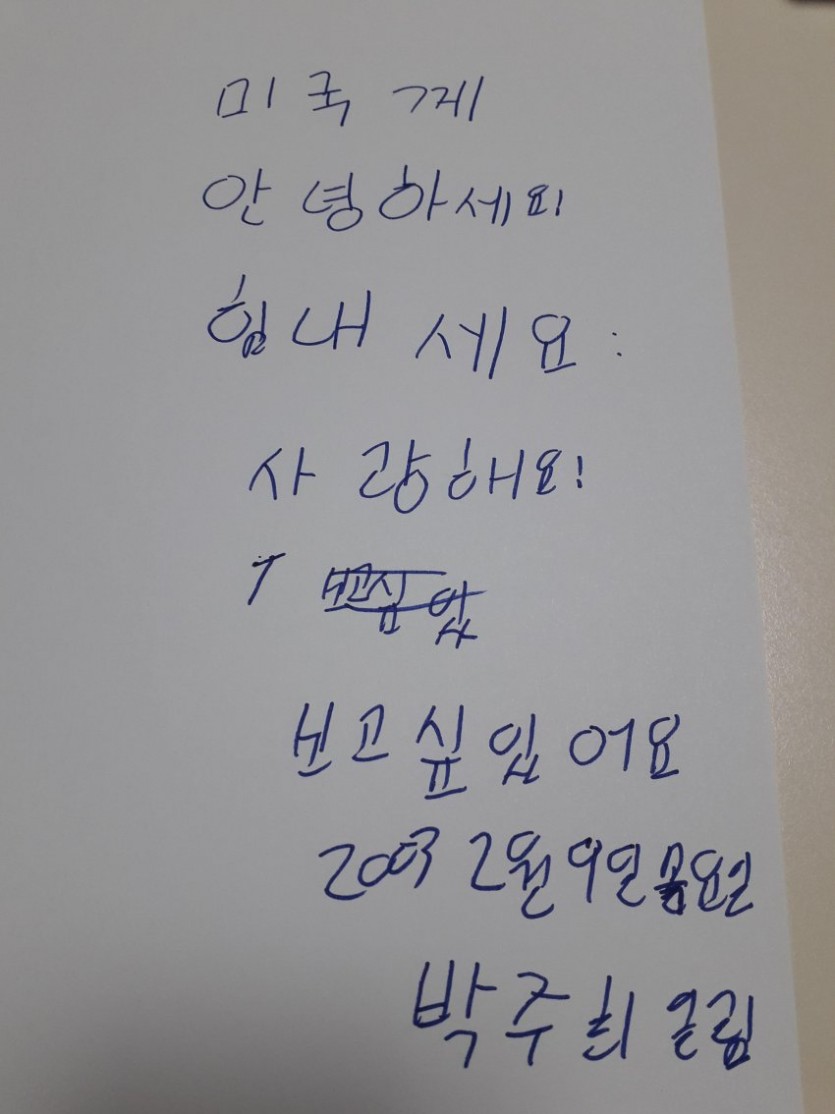 미국 께
안녕하세요!
힘내 세요:
사랑해요!
보고싶
보고싶 있어요
2003 2월 9일 요일
박주희 올림